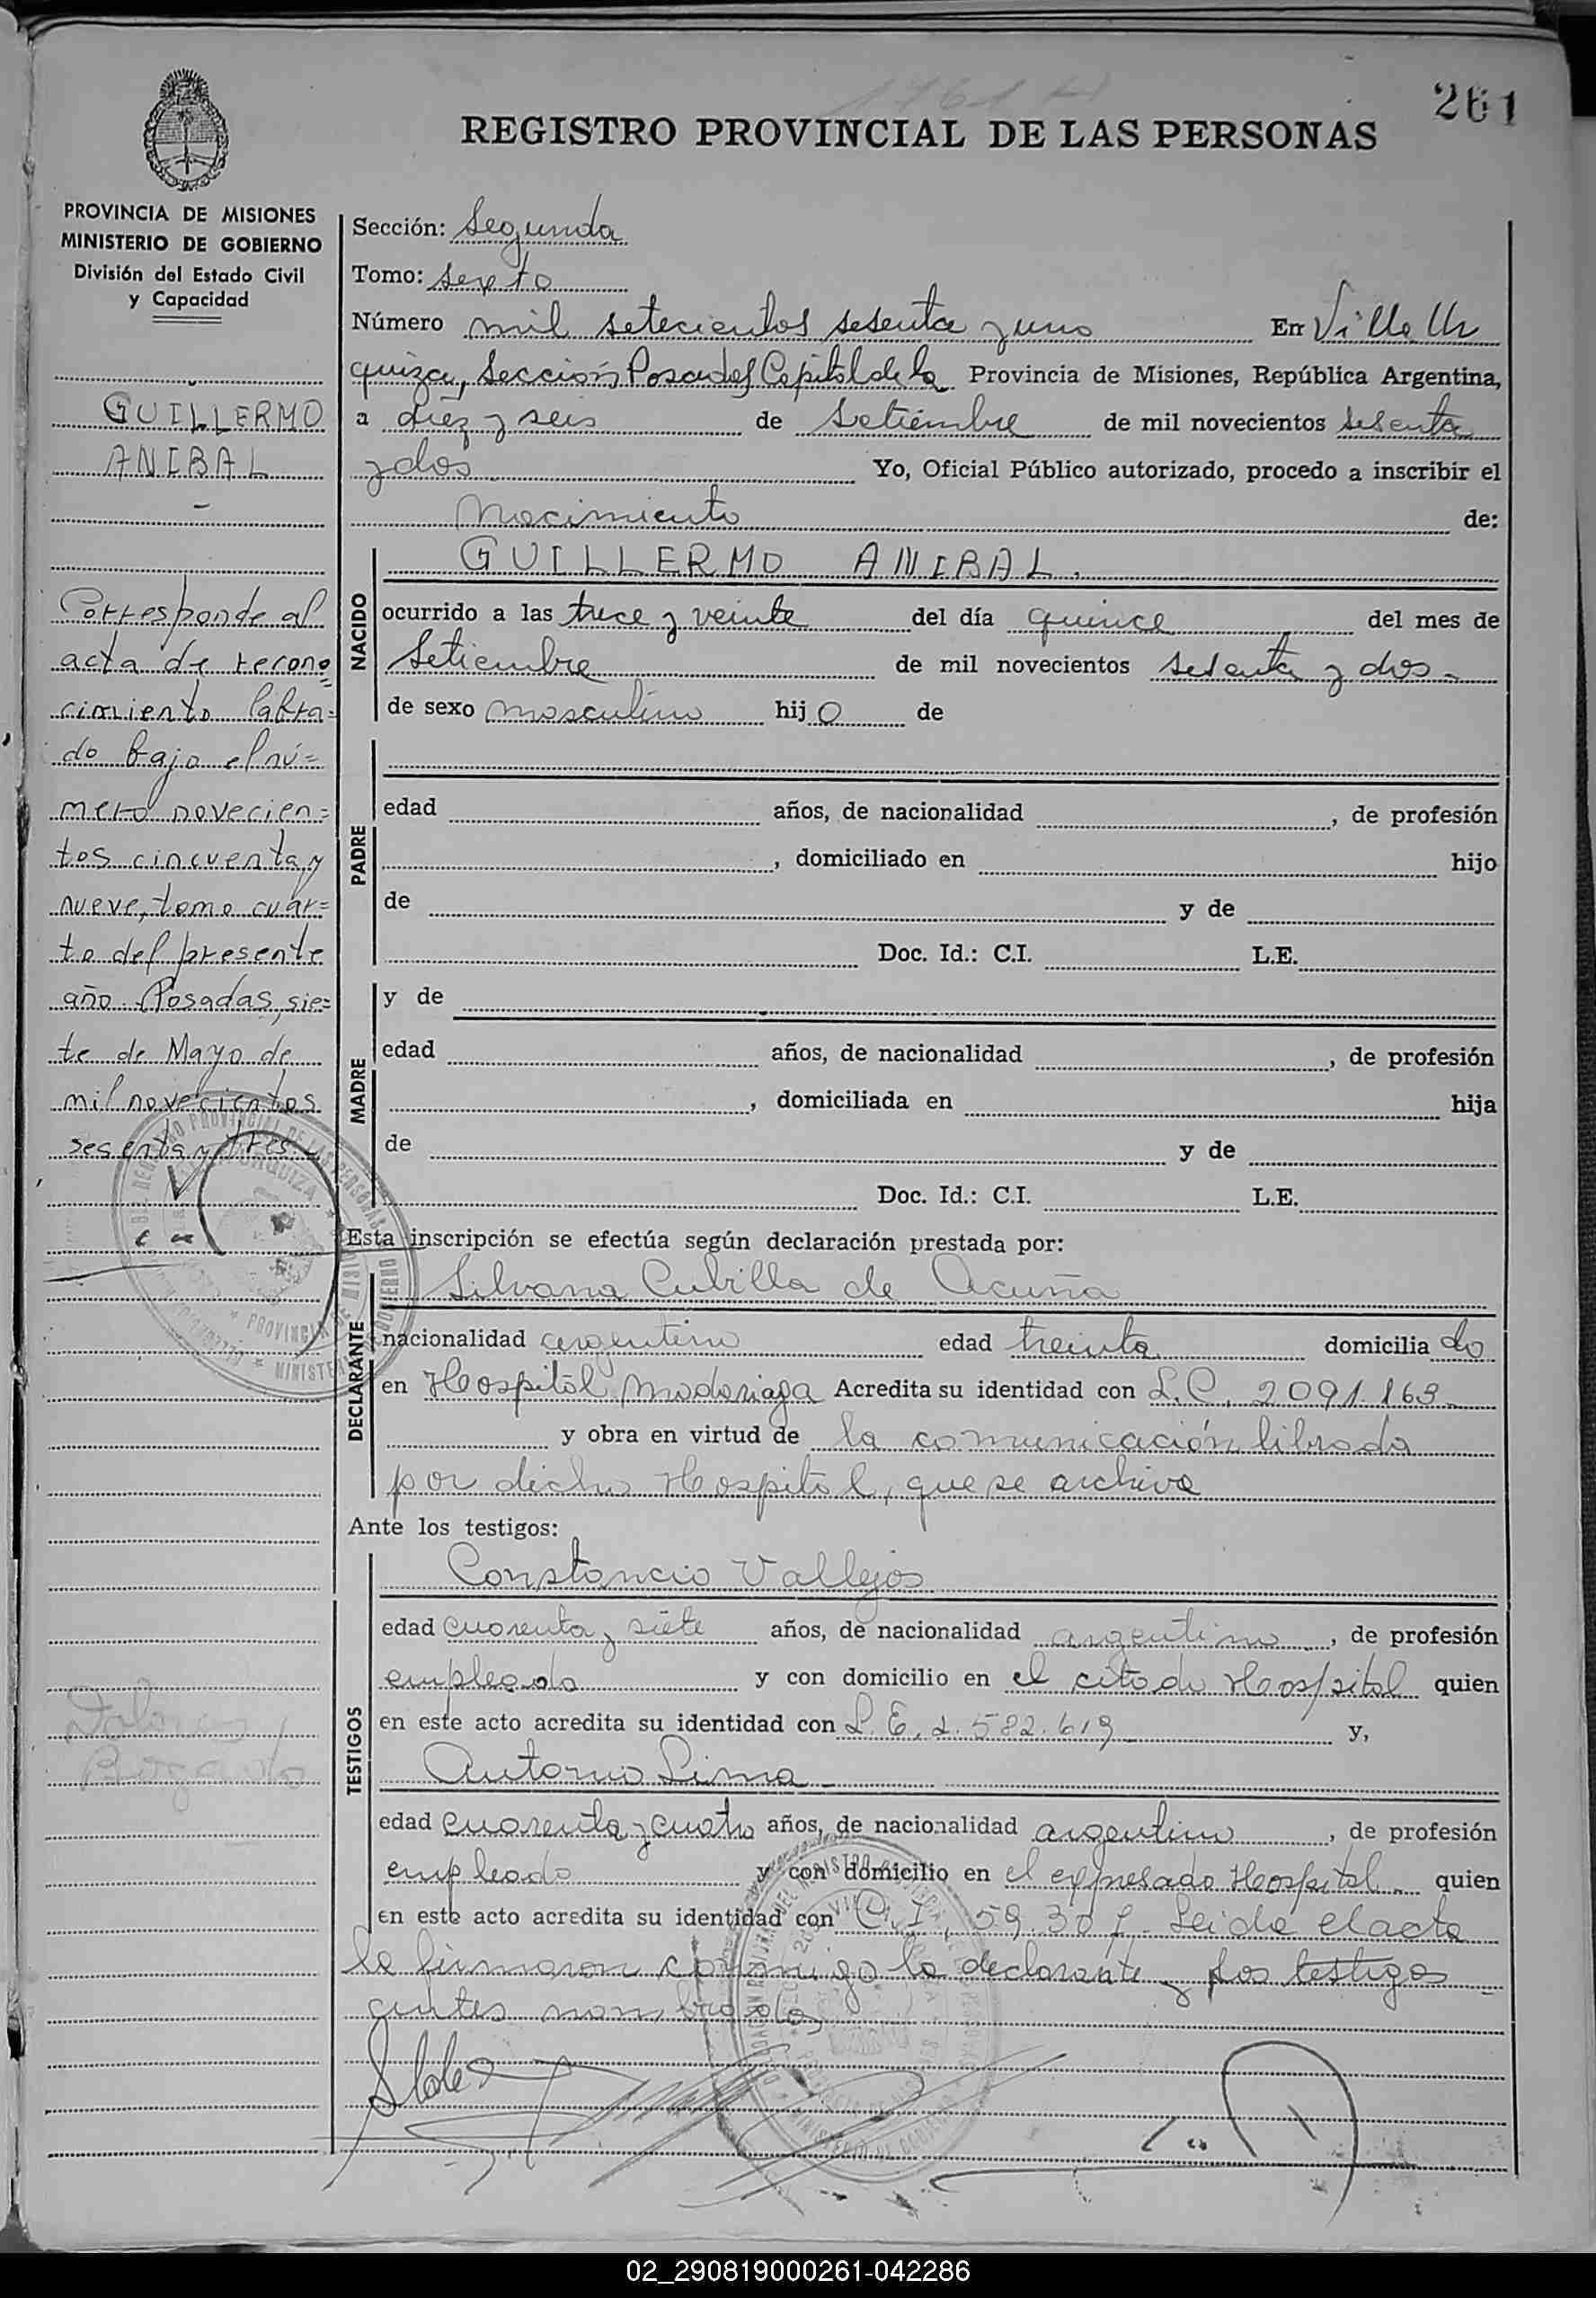 261
REGISTRO PROVINCIAL DE LAS PERSONAS
PROVINCIA DE MISIONES
MINISTERIO DE GOBIERNO
División del Estado Civil
y Capacidad
GUILLERMO
ANIBAL
Corresponde al
acta de recono=
cimiento labra=
do bajo el nú=
mero novecien=
tos cincuenta y
nueve, tomo cuar=
to del presente
año. Posadas, sie=
te de Mayo de
mil novecientos
sesenta y tres
Sección: Segunda
Tomo: sexto
Número mil setecientos sesenta y uno En Villa Ur
quiza, Sección Posadas Capital de la Provincia de Misiones, República Argentina,
a diez y seis de Setiembre de mil novecientos sesenta
y dos Yo, Oficial Público autorizado, procedo a inscribir el
Nacimiento de:
NACIDO
GUILLERMO ANIBAL.
ocurrido a las trece y veinte del día quince del mes de
Setiembre de mil novecientos sesenta y dos-
de sexo masculino hijo de
PADRE
edad años, de nacionalidad , de profesión
, domiciliado en hijo
de y de
Doc. Id.: C.I. L.E.
MADRE
y de
edad años, de nacionalidad , de profesión
, domiciliada en hija
de y de
Doc. Id.: C.I. L.E.
Esta inscripción se efectúa según declaración prestada por:
DECLARANTE
Silvana Cubilla de Acuña
nacionalidad argentina edad treinta domicilia do
en Hospital Madariaga Acredita su identidad con L.C. 2091.163-
y obra en virtud de la comunicación librada
por dicho Hospital, que se archiva
Ante los testigos:
TESTIGOS
Constancio Vallejos
edad cuarenta y siete años, de nacionalidad argentino, de profesión
empleado y con domicilio en el citado Hospital quien
en este acto acredita su identidad con L.E. 2.582.619 y,
Antonio Lima
edad cuarenta y cuatro años, de nacionalidad argentino, de profesión
empleado y con domicilio en el expresado Hospital quien
en este acto acredita su identidad con C.I. 59.307- Leida el acta
la firmaron conmigo la declarante y los testigos
antes nombrados
02_290819000261-042286